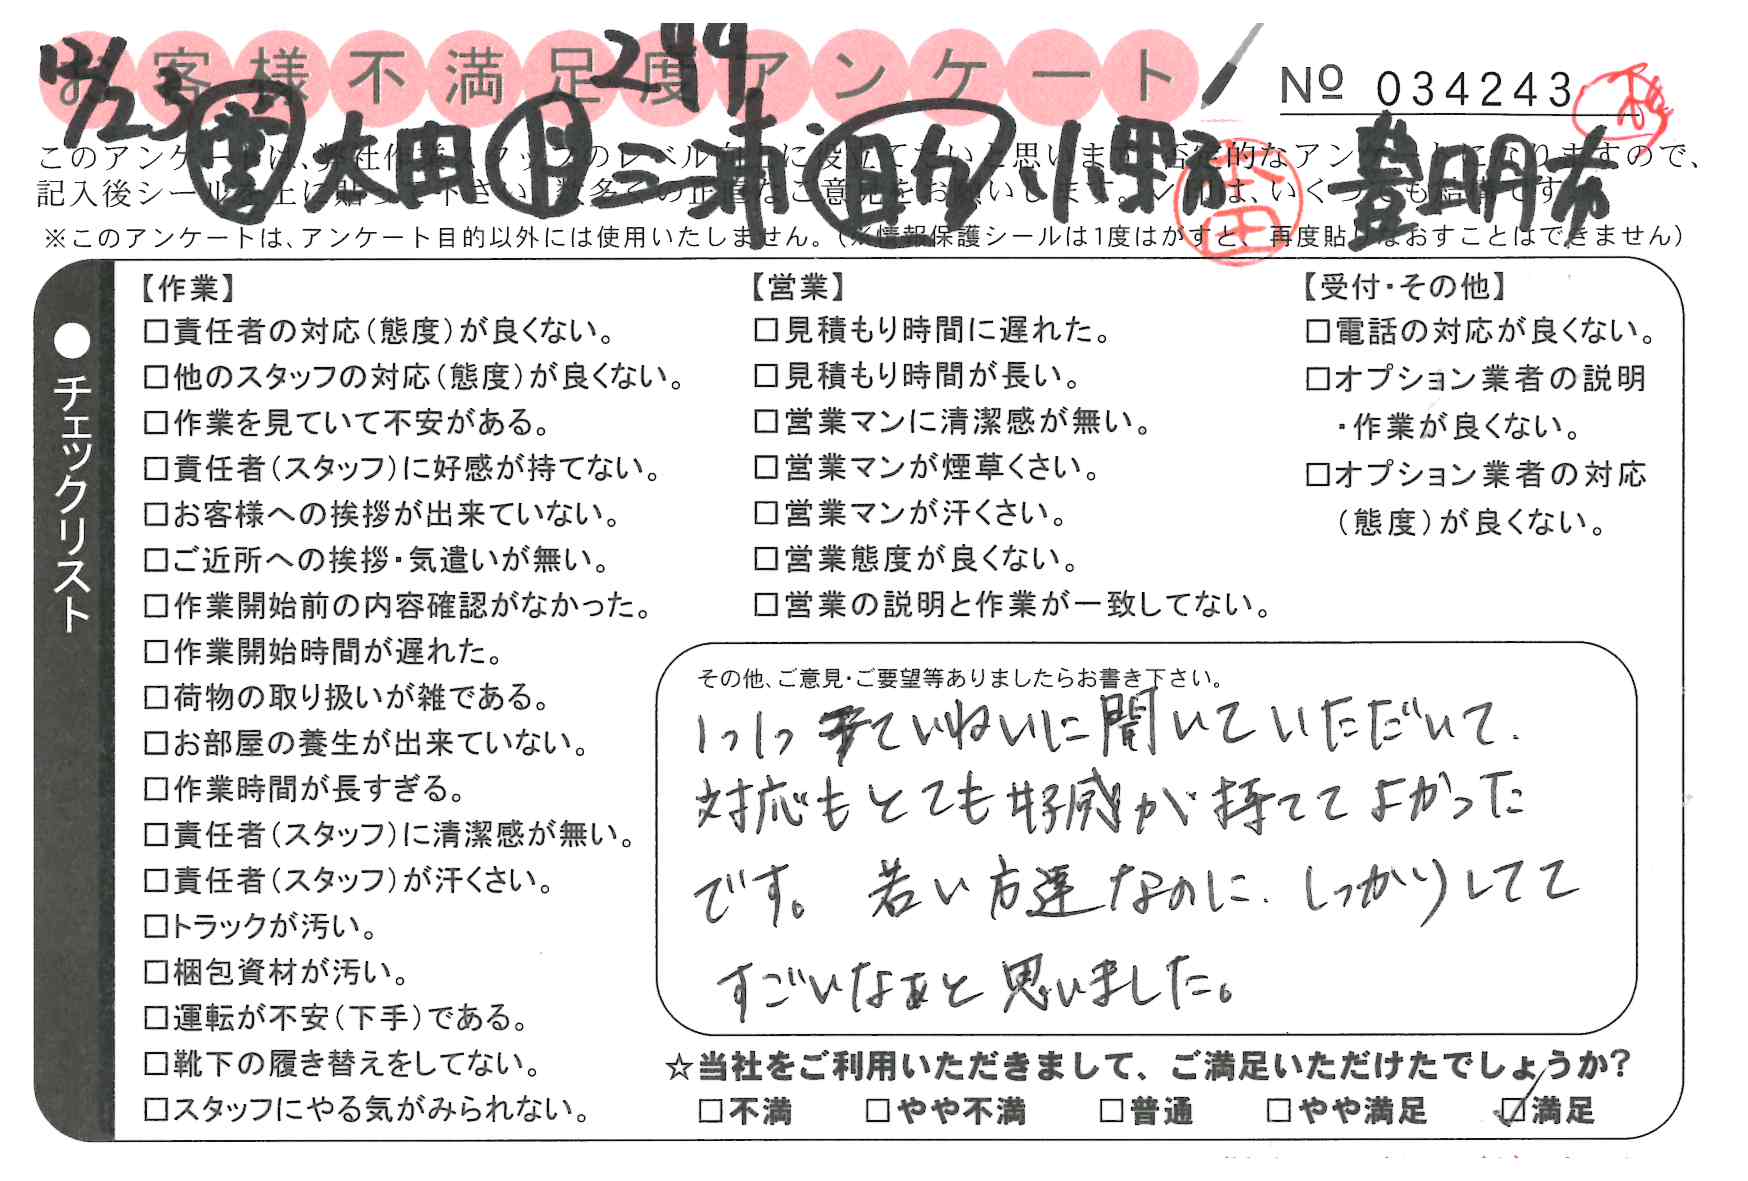 お客様不満足度アンケート
249
12/23
№ 034243
太田 三浦 小野 豊明希
このアンケートは、弊社作業スタッフのレベル向上に役立てたいと思います。
記入後シールを上に貼って下さい。数多くの正直なご意見をお願いします。
※このアンケートは、アンケート目的以外には使用いたしません。(※情報保護シールは1度はがすと、再度貼りなおすことはできません)
●チェックリスト
【作業】
□責任者の対応(態度)が良くない。
□他のスタッフの対応(態度)が良くない。
□作業を見ていて不安がある。
□責任者(スタッフ)に好感が持てない。
□お客様への挨拶が出来ていない。
□ご近所への挨拶・気遣いが無い。
□作業開始前の内容確認がなかった。
□作業開始時間が遅れた。
□荷物の取り扱いが雑である。
□お部屋の養生が出来ていない。
□作業時間が長すぎる。
□責任者(スタッフ)に清潔感が無い。
□責任者(スタッフ)が汗くさい。
□トラックが汚い。
□梱包資材が汚い。
□運転が不安(下手)である。
□靴下の履き替えをしてない。
□スタッフにやる気がみられない。
【営業】
□見積もり時間に遅れた。
□見積もり時間が長い。
□営業マンに清潔感が無い。
□営業マンが煙草くさい。
□営業マンが汗くさい。
□営業態度が良くない。
□営業の説明と作業が一致してない。
【受付・その他】
□電話の対応が良くない。
□オプション業者の説明
・作業が良くない。
□オプション業者の対応
(態度)が良くない。
その他、ご意見・ご要望等ありましたらお書き下さい。
1つ1つ ていねいに聞いていただいて、
対応もとても好感が持ててよかった
です。若い方達なのに、しっかりしてて
すごいなぁと思いました。
☆当社をご利用いただきまして、ご満足いただけたでしょうか?
□不満 □やや不満 □普通 □やや満足 ☑満足